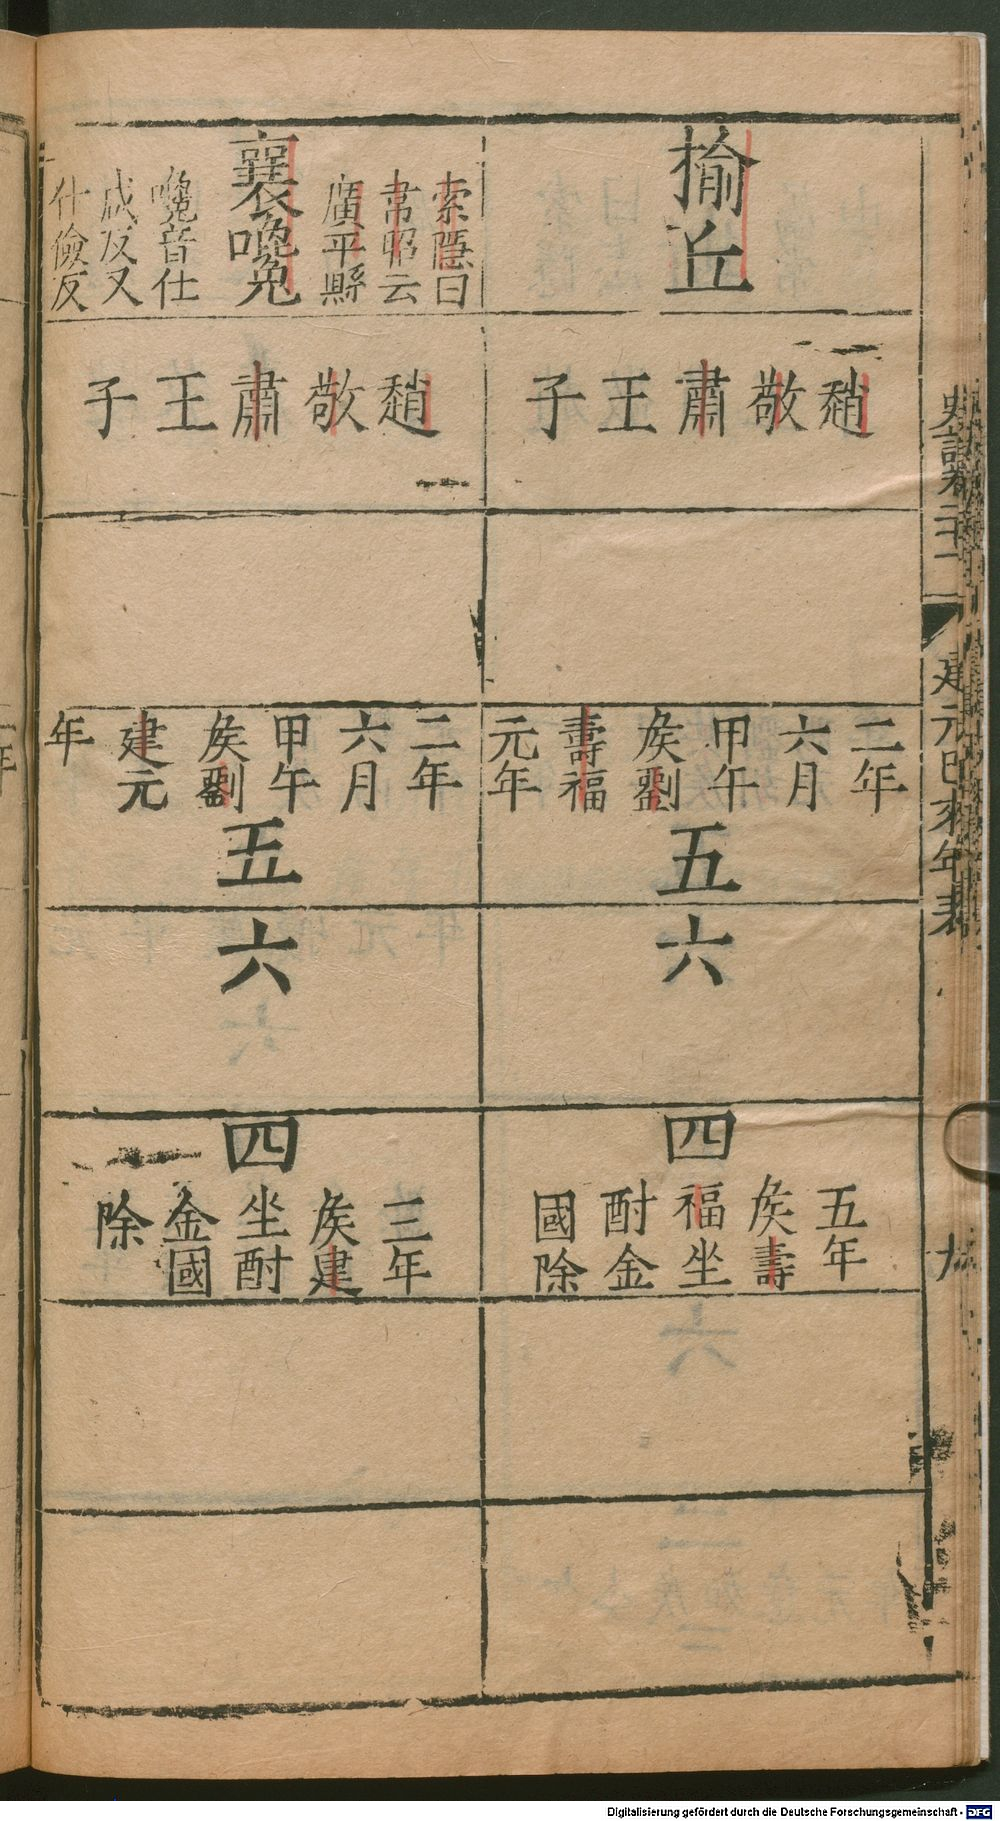 揄丘
趙敬肅王子
二年
六月
甲午
矦劉
壽福
元年
五
六
四
五年
矦壽
福坐
酎金
國除
襄嚵
索隱曰
韋昭云
廣平縣
嚵音仕
咸反又
仕儉反
趙敬肅王子
二年
六月
甲午
矦劉
建元
年
五
六
四
三年
矦建
坐酎
金國
除
史記卷二十一
建元巳來年表
Digitalisierung gefördert durch die Deutsche Forschungsgemeinschaft - DFG